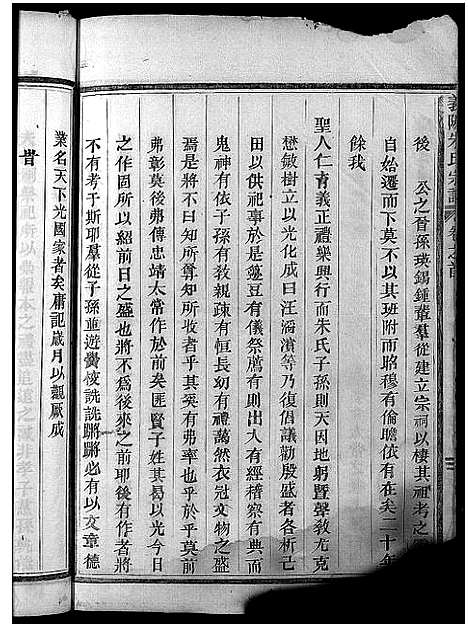 義門朱氏宗譜 卷之首
後 公之晉孫瑛錫鍾輩羣從建立宗祠以棲其祖考之
自始遷而下莫不以其班附而昭穆有倫瞻依有在矣二十年
餘我
聖人仁育義正禮樂興行而朱氏子孫則天因地躬暨聲教尤克
懋敏樹立以光化成曰汪瀚濱等乃復倡議勸殷盛者各析己
田以供祀事於是籩豆有儀祭薦有則出入有經稽察有典而
鬼神有依子孫有殺親疎有恒長幼有禮藹然衣冠文物之盛
焉是將不曰知所尊知所收者乎其矣有弗率也乎於乎莫前
弗彰莫後弗傳忠靖太常作於前矣匪賢子姓其曷以光今日
之作固所以紹前日之盛也將不為後來之前耶後有作者將
不有考于斯耶羣從子孫並遊黌校詵詵蹡蹡必有以文章德
業名天下光國家者矣庸記歲月以觀厥成
昔